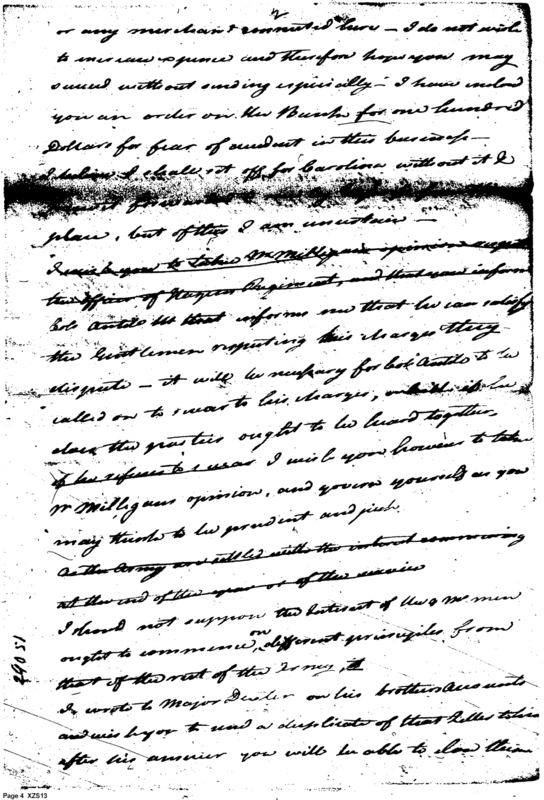 2
or any merchant connected here – I do not wish
to increase expence and therefore hope you may
succeed without sending especially – I have inclosed
you an order on the Bank for one hundred
Dollars for fear of accident in this business –
I believe I shall set off for Carolina without it I
place, but of this I am uncertain –
I wish you to take Mr Milligans opinion
the officers of Hazens Regiment, and that you inform
Col Antill that informs me that he can satisfy
the Gentlemen respecting his charges they
dispute – it will be necessary for Col Antill to be
called on to swear to his charges, if he
does the parties ought to be heard together,
if he refuses to swear I wish you however to take
Mr Milligans opinion, and govern yourself as you
may think to be prudent and just
as the Army are settled with the interest commencing
at the end of the year or of the service
I should not suppose the Interest of the 9 Mo men
ought to commence on different principles from
that of the rest of the Army,
I wrote to Major on his brothers accounts
and wish you to send a duplicate of that Letter to him
after his answer you will be able to close them
29051
Page 4 XZS13